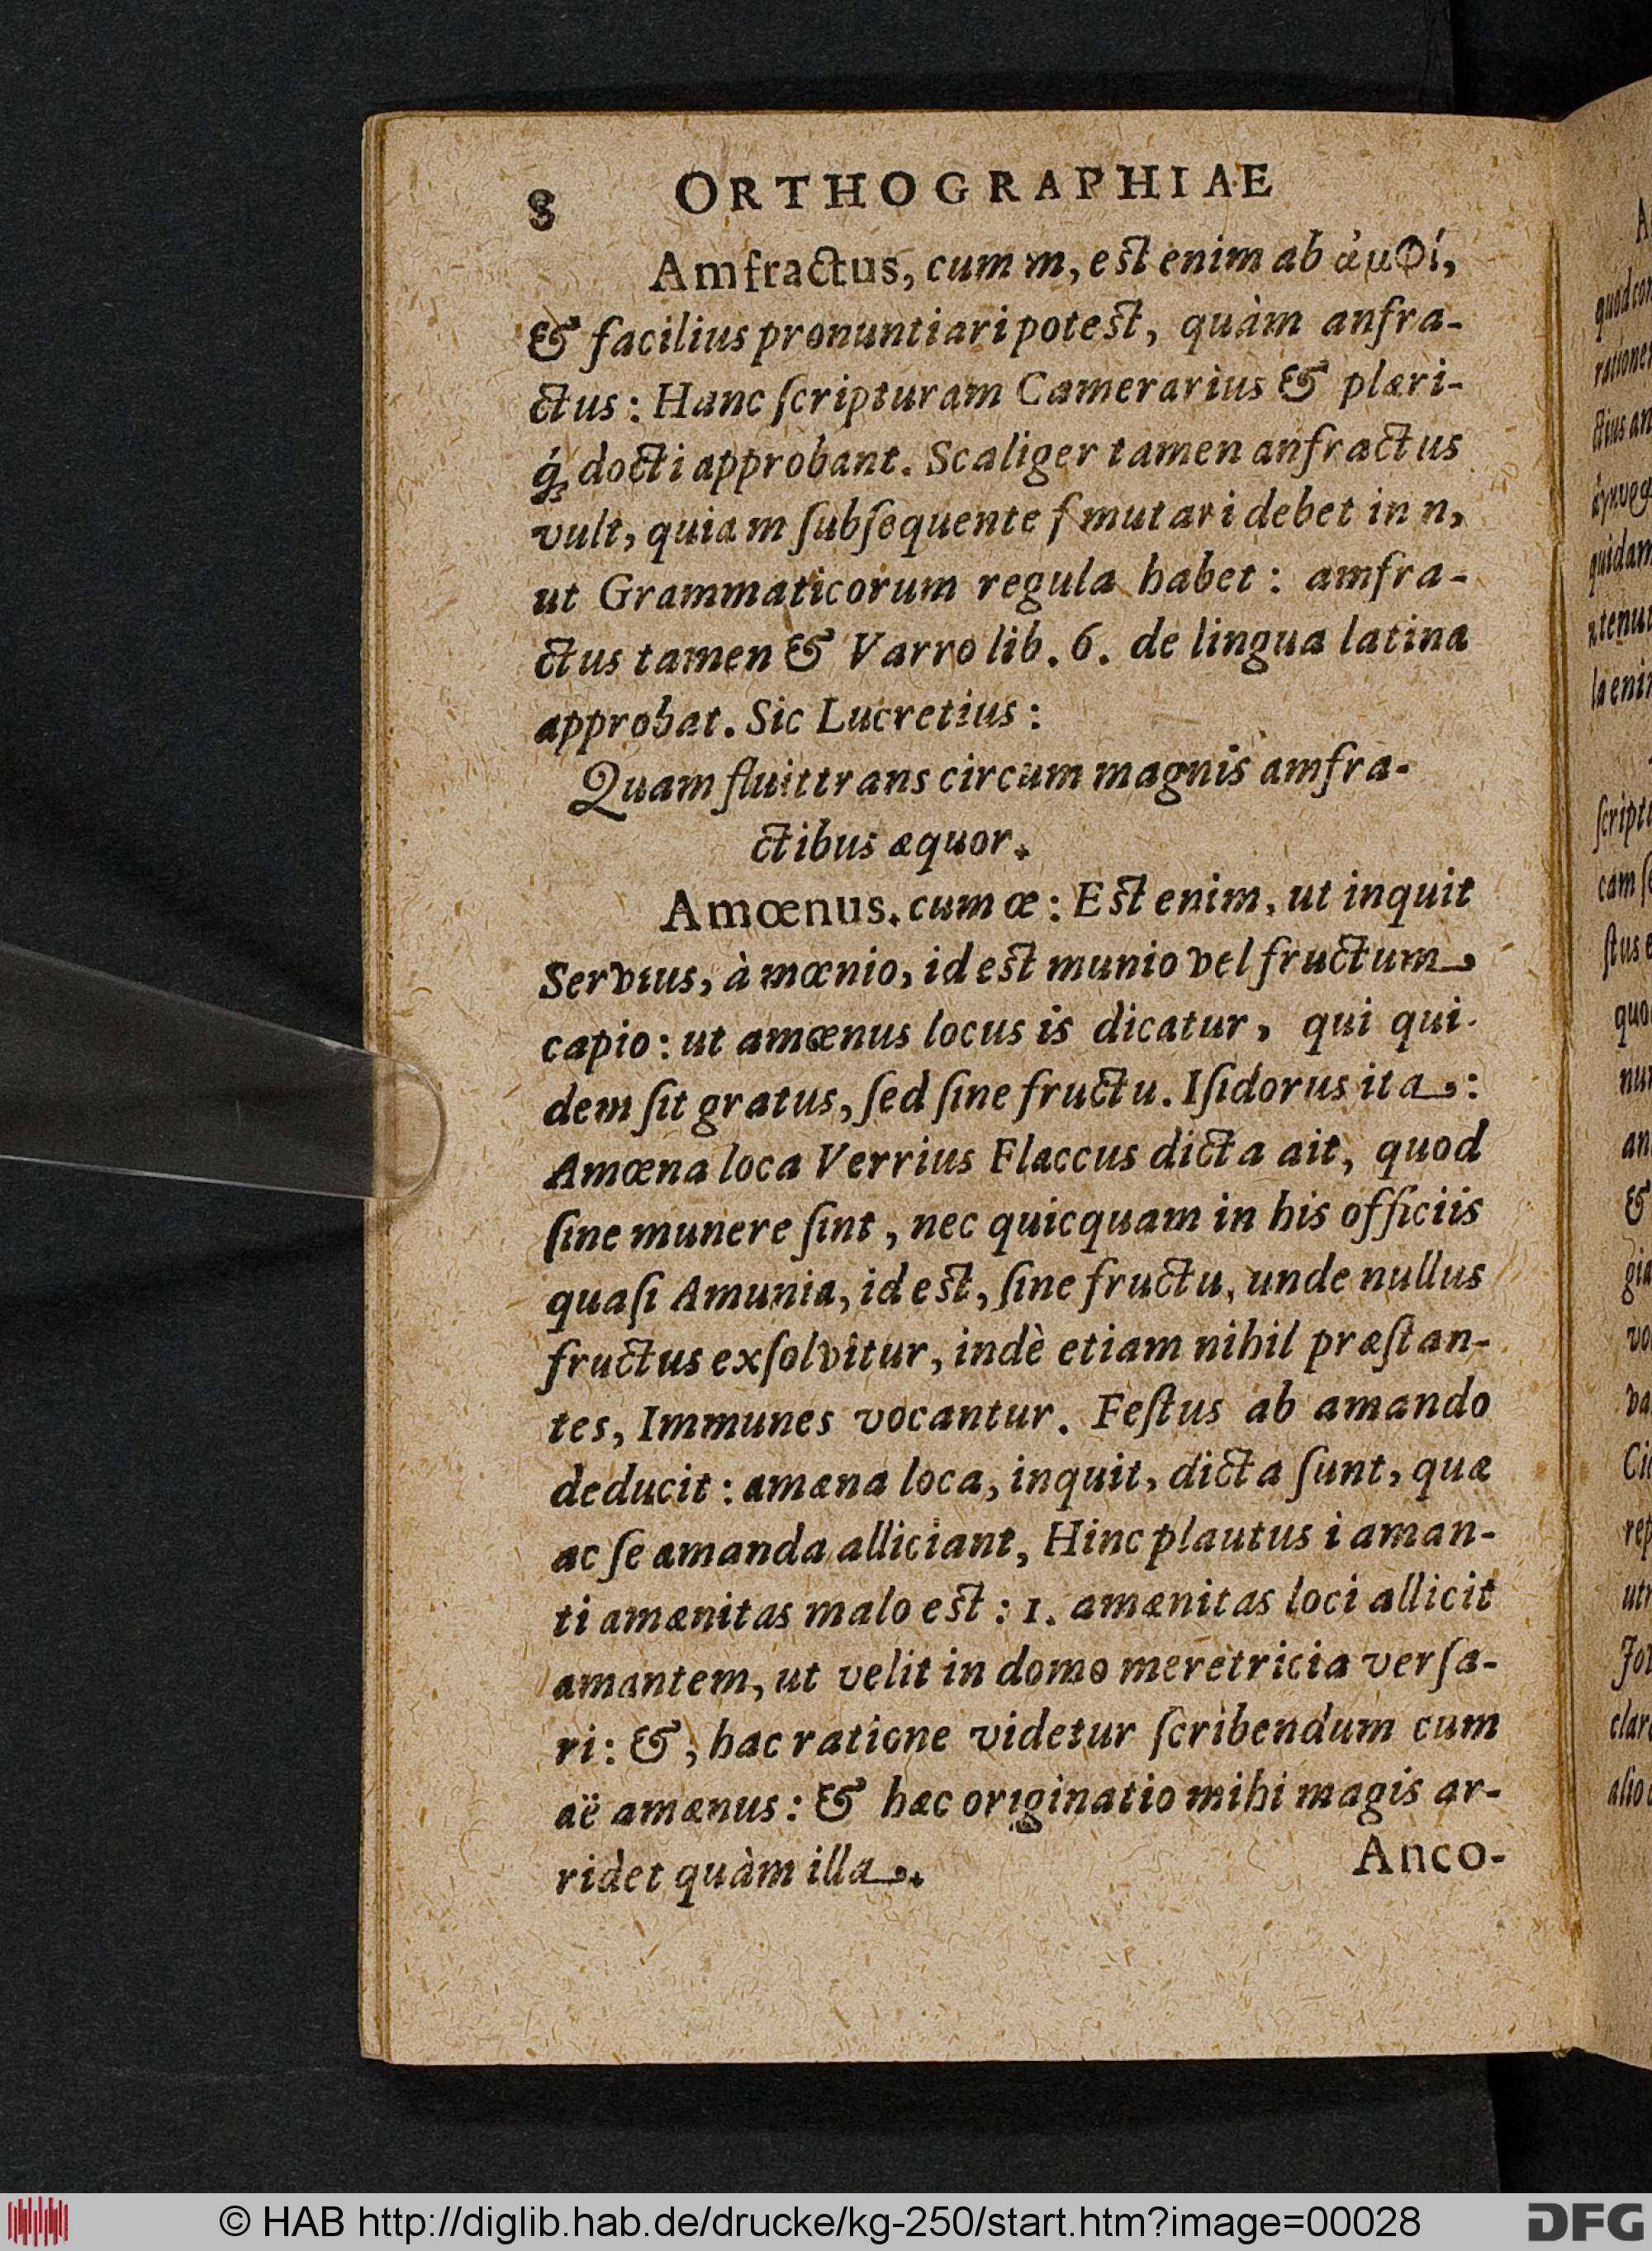 8 ORTHOGRAPHIAE
Amfractus, cum m, est enim ab ἀμφί,
& facilius pronuntiari potest, quàm anfra-
ctus: Hanc ſcripturam Camerarius & plæri-
q́; docti approbant. Scaliger tamen anfractus
vult, quia m ſubſequente f mutari debet in n,
ut Grammaticorum regula habet: amfra-
ctus tamen & Varro lib. 6. de lingua latina
approbat. Sic Lucretius:
Quam fluittrans circum magnis amfra-
ctibus æquor.
Amœnus. cum œ: Est enim, ut inquit
Servius, à mœnio, id est munio vel fructum
capio: ut amœnus locus is dicatur, qui qui-
dem ſit gratus, ſed ſine fructu. Iſidorus ita:
Amœna loca Verrius Flaccus dicta ait, quod
ſine munere ſint, nec quicquam in his officiis
quaſi Amunia, id est, ſine fructu, unde nullus
fructus exſolvitur, indè etiam nihil præſtan-
tes, Immunes vocantur. Feſtus ab amando
deducit: amæna loca, inquit, dicta ſunt, quæ
ac ſe amanda alliciant, Hinc plautus i aman-
ti amænitas malo est: 1. amænitas loci allicit
amantem, ut velit in domo meretricia verſa-
ri: &, hac ratione videtur ſcribendum cum
aë amænus: & hæc originatio mihi magis ar-
ridet quàm illa.
Anco-
© HAB http://diglib.hab.de/drucke/kg-250/start.htm?image=00028
DFG